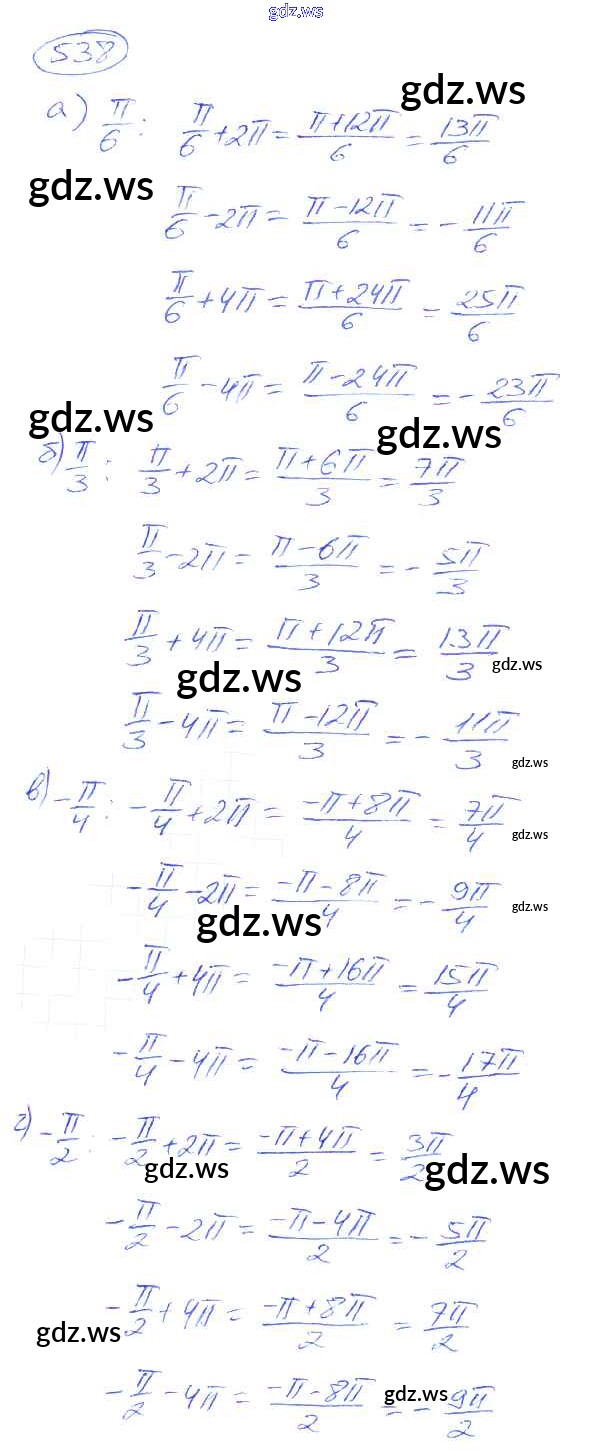 gdz.ws
538
а) π/6: π/6 + 2π = (π+12π)/6 = 13π/6
gdz.ws
gdz.ws
π/6 - 2π = (π-12π)/6 = - 11π/6
π/6 + 4π = (π+24π)/6 = 25π/6
π/6 - 4π = (π-24π)/6 = - 23π/6
gdz.ws
gdz.ws
б) π/3: π/3 + 2π = (π+6π)/3 = 7π/3
π/3 - 2π = (π-6π)/3 = - 5π/3
π/3 + 4π = (π+12π)/3 = 13π/3
gdz.ws
gdz.ws
π/3 - 4π = (π-12π)/3 = - 11π/3
gdz.ws
в) -π/4: -π/4 + 2π = (-π+8π)/4 = 7π/4
gdz.ws
-π/4 - 2π = (-π-8π)/4 = - 9π/4
gdz.ws
gdz.ws
-π/4 + 4π = (-π+16π)/4 = 15π/4
-π/4 - 4π = (-π-16π)/4 = - 17π/4
г) -π/2: -π/2 + 2π = (-π+4π)/2 = 3π/2
gdz.ws
gdz.ws
-π/2 - 2π = (-π-4π)/2 = - 5π/2
-π/2 + 4π = (-π+8π)/2 = 7π/2
gdz.ws
-π/2 - 4π = (-π-8π)/2 = - 9π/2
gdz.ws